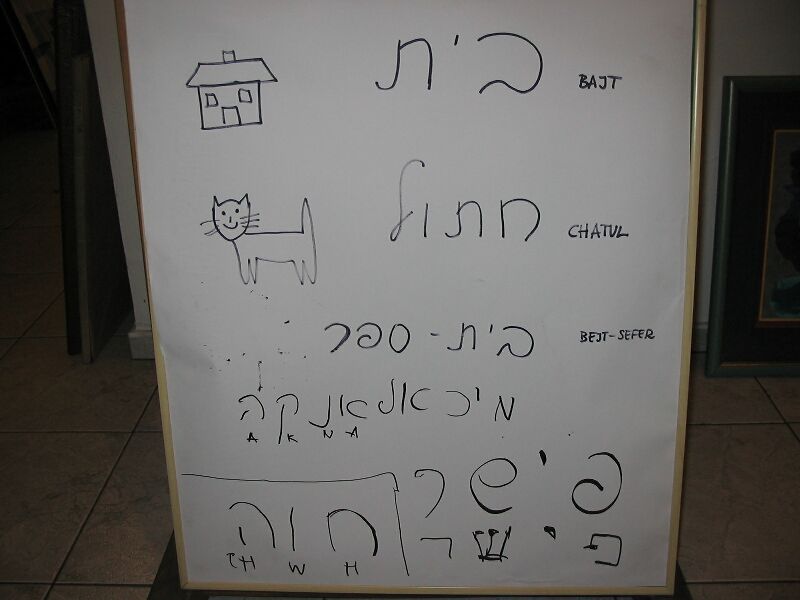 בית BAJT
חתול CHATUL
בית - ספר BEJT-SEFER
מיכאל אנקה
A K N A
פישר
פישר
חוה
W H